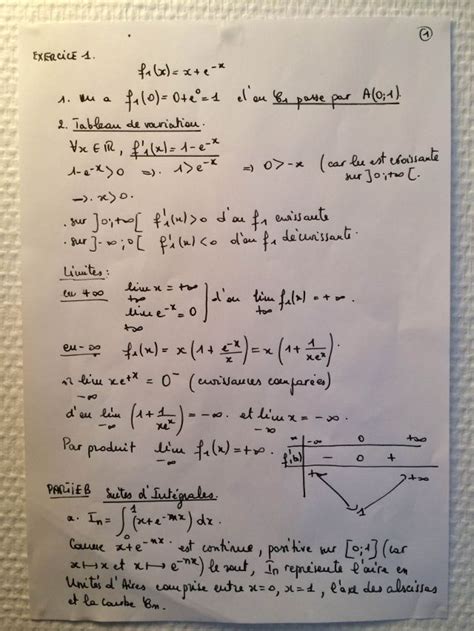 ①
EXERCICE 1.
f₁(x) = x + e^{-x}
1. on a f₁(0) = 0 + e⁰ = 1 d'où C₁ passe par A(0;1).
2. Tableau de variation.
∀x ∈ ℝ, f'₁(x) = 1 - e^{-x}
1 - e^{-x} > 0 ⇒ 1 > e^{-x} ⇒ 0 > -x (car ln est croissante
sur ]0;+∞[.
→ x > 0.
· sur ]0;+∞[ f'₁(x) > 0 d'où f₁ croissante
· sur ]-∞;0[ f'₁(x) < 0 d'où f₁ décroissante.
Limites :
en +∞ lim x = +∞
+∞
lim e^{-x} = 0 } d'où lim f₁(x) = +∞.
+∞ +∞
en -∞ f₁(x) = x(1 + e^{-x}/x) = x(1 + 1/(xe^x)).
lim xe^{+x} = 0⁻ (croissances comparées)
-∞
d'où lim (1 + 1/(xe^x)) = -∞. et lim x = -∞.
-∞ -∞
Par produit lim f₁(x) = +∞.
-∞
x -∞ 0 +∞
f'₁(x) - 0 +
+∞ 1 +∞
PARTIE B Suites d'Intégrales.
a. Iₙ = ∫₀¹ (x + e^{-nx}) dx.
Comme x + e^{-nx} est continue, positive sur [0;1] (car
x ↦ x et x ↦ e^{-nx} le sont, Iₙ représente l'aire en
Unités d'Aires comprise entre x=0, x=1, l'axe des abscisses
et la courbe Cₙ.